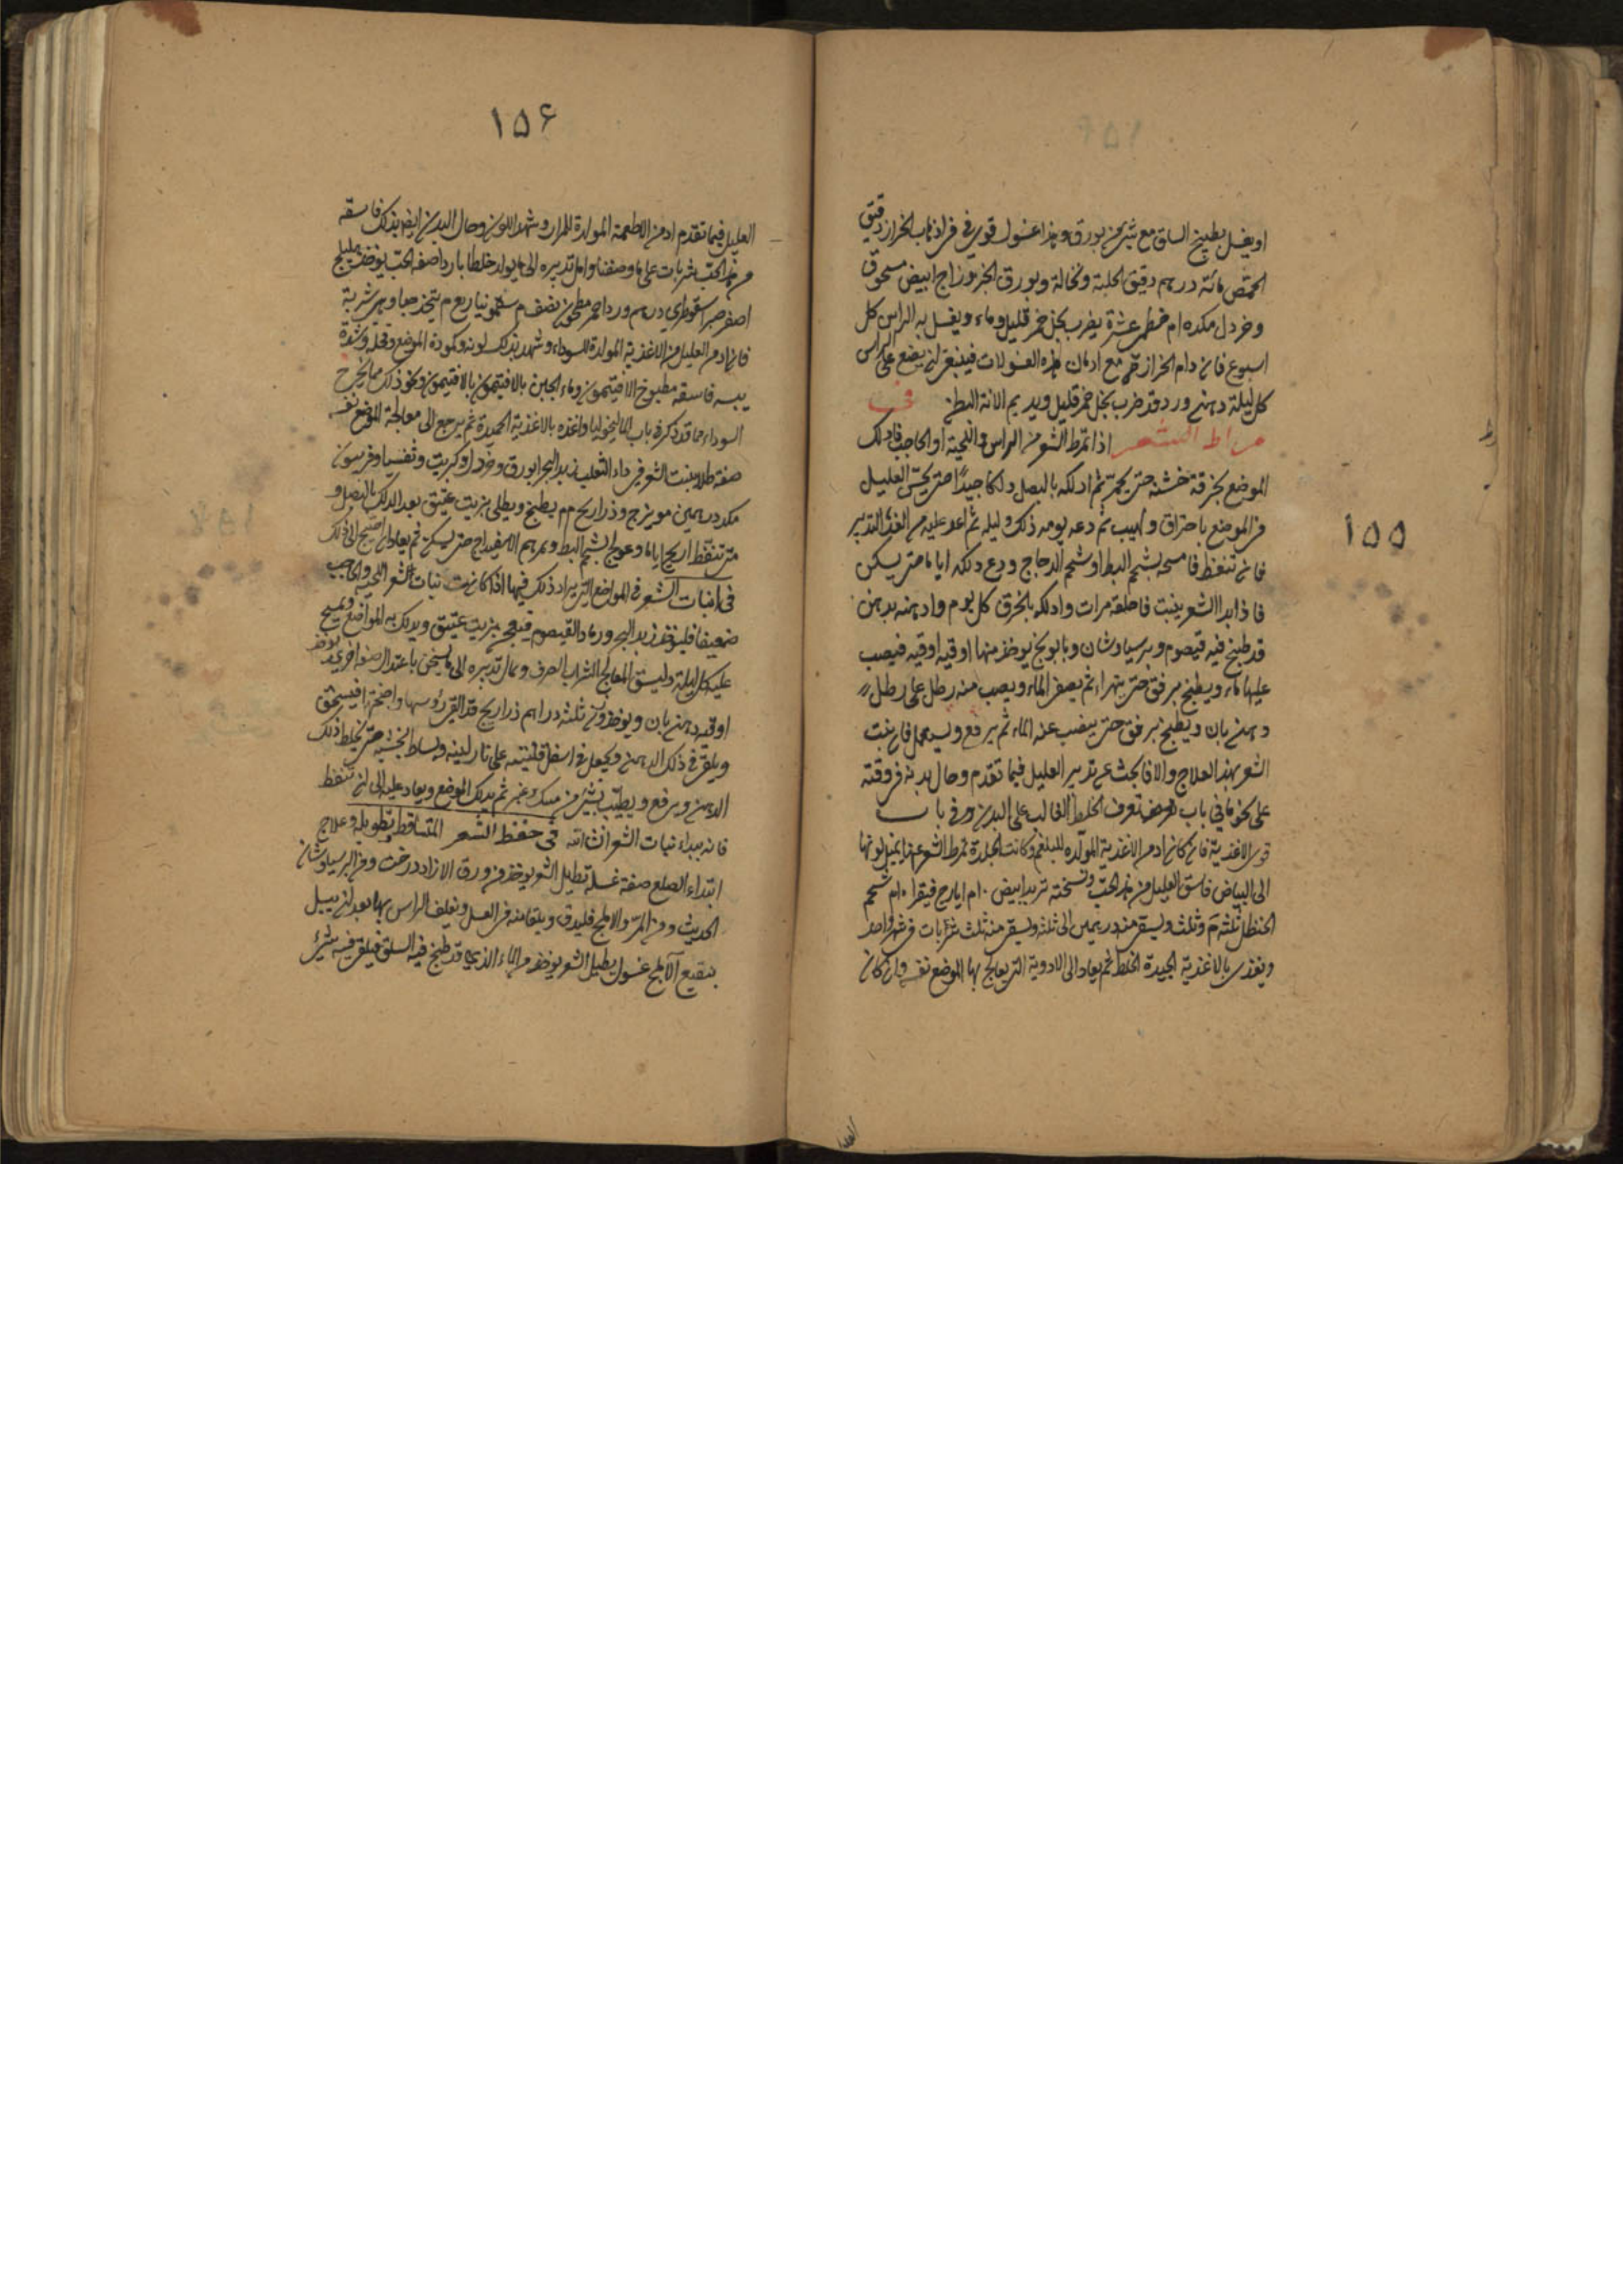 ١٥٥
او يغسل بطبيخ السلق مع شئ من بورق وهذا غسول قوي في اذهاب الحزاز دقيق
الحمص مائة درهم دقيق الحلبة ونخالة وبورق الخبز وزاج ابيض مسحوق
وخردل مكد ١٠م خطمي عشرة يضرب بخل خمر قليل وماء ويغسل به الراس كل
اسبوع فان دام الحزاز مع ادمان هذه الغسولات فينبغي ان يضع على الراس
كل ليلة دهن ورد قد ضرب بخل خمر قليل ويديم الانة البطن في
مراط الشعر اذا تمرط الشعر من الراس واللحية او الحاجب فادلك
الموضع بخرقة خشنة حتى يحمر ثم ادلكه بالبصل دلكا جيدا حتى يحس العليل
في الموضع باحتراق ولهيب ثم دعه يومه ذلك وليله ثم اعد عليه من الغد التدبير
فان تنفط فامسحه بشحم البط او شحم الدجاج ودع دلكه اياما حتى يسكن
فاذا بدا الشعر ينبت فاحلقه مرات وادلكه بالخرق كل يوم وادهنه بدهن
قد طبخ فيه قيصوم وبرسياوشان وبابونج يوخذ منها اوقيه اوقيه فيصب
عليها ماء ويطبخ برفق حتى يتهراء ثم يصفى الماء ويصب منه رطل على رطل
دهن بان ويطبخ برفق حتى ينضب عنه الماء ثم يرفع ويستعمل فان نبت
الشعر بهذا العلاج والا فابحث عن تدبير العليل فيما تقدم وحال بدنه في وقته
على نحو ما في باب تعرف الخلط الغالب على البدن وفي باب
قوى الاغذية فان كان ادمن الاغذية المولده للبلغم وكانت الجلدة تمرط الشعر عنها يميل لونها
الى البياض فاسق العليل من هذا الحب ونسخته تربد ابيض ١٠م ايارج فيقرا ١٠م شحم
الحنظل ثلثة م وثلث ويسقى منه درهمين الى ثلثة ويسقى منه ثلث شربات في شهر واحد
ويغذى بالاغذية الجيدة الخلط ثم يعاد الى الادوية التي يعالج بها الموضع نفسه وان كان
١٥٦
العليل فيما تقدم ادمن الاطعمة المولدة للمرار وشهد اللون وحال البدن ايضا بذلك فاسقه
من هذا الحب شربات على ما وصفنا وامل تدبيره الى ما يولد خلطا باردا صفه الحب يوخذ هليلج
اصفر صبر اسقوطري درهم ورد احمر مطحون نصف م سقمونيا ربع م يتخذ حبا وهي شربة
فان ادمن العليل من الاغذية المولدة للسوداء وشهد بذلك لونه وكمودة الموضع وقحله وشدة
يبسه فاسقه مطبوخ الافتيمون وماء الجبن بالافتيمون ونحو ذلك مما يخرج
السوداء مما قد ذكر في باب الماليخوليا واغذه بالاغذية الحميدة ثم يرجع الى معالجة الموضع نفسه
صفة طلا ينبت الشعر في داء الثعلب زبد البحر بورق وخردل وكبريت وثفسيا وفربيون
مكد درهمين مويزج وذراريح م م يطبخ ويطلى بزيت عتيق بعد الدلك بالبصل و
متى تنفط اريح اياما وعولج بشحم البط ومرهم الاسفيداج حتى يسكن ثم يعاد ان احتيج الى ذلك
في انبات الشعر في المواضع التي يراد ذلك فيها اذا كانت نبات شعر اللحية والحاجب
ضعيفا فليوخذ زبد البحر ورماد القيصوم فيعجن بزيت عتيق ويدلك به المواضع ويمسح
عليه كل ليلة وليسق المعالج الشراب الصرف ويمال تدبيره الى ما يسخن باعتدال صفة اخرى يوخذ
اوقية دهن بان ويوخذ وزن ثلثة دراهم ذراريح قد القى رؤسها واجنحتها فيسحق
ويلقى في ذلك الدهن ويجعل في اسفل قنينته على نار لينه حتى يختلط ذلك
الدهن ويرفع ويطيب بشئ من مسك وعنبر ثم يدلك الموضع ويعاد عليه الى ان تنفط
فانه يبداء نبات الشعر ان شاء الله في حفظ الشعر المتساقط وتطويله وعلاج
ابتداء الصلع صفة غسلة تطيل الشعر يوخذ من ورق الازاددرخت ومن البرسياوشان
الحديث ومن المر والاملج فليدق ويتقا منه في الغسل ويغلف الراس بها بعد ان يبل
بنقيع الآملج غسول يطيل الشعر يوخذ من الماء الذي قد طبخ فيه السلق فيلقى فيه شئ